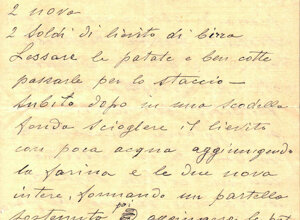 2 nova
2 Soldi di lievito di birra
Lessare le patate e ben cotte
passarle per lo staccio —
Subito dopo in una scodella
fonda sciogliere il lievito
con poca acqua aggiungendo
la farina e le due nova
intere, formando un partello
sostenuto poi aggiungere le pa